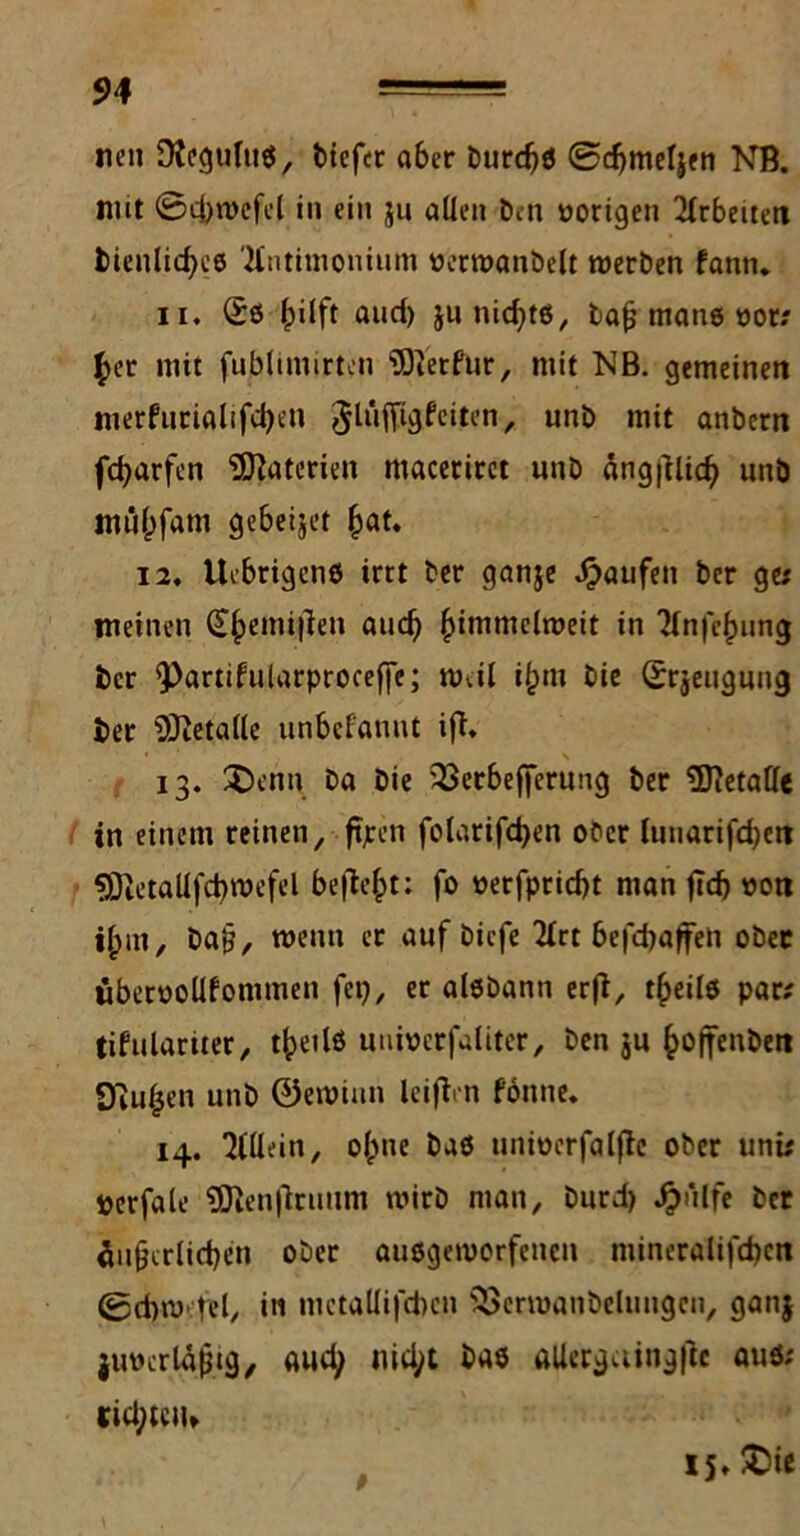 94
nen Regulus, dieser aber durchs Schmelzen NB.
mit Schwefel in ein zu allen den vorigen Arbeiten
dienliches Antimonium verwandelt werden kann.
11. Es hilft auch zu nichts, daß mans vor-
her mit sublimirten Merkur, mit NB. gemeinen
merkurialischen Flüssigkeiten, und mit andern
scharfen Materien maceriret und ängstlich und
mühsam gebeizet hat.
12. Uebrigens irrt der ganze Haufen der ge-
meinen Chemisten auch himmelweit in Ansehung
der Partikularprocesse; weil ihm die Erzeugung
der Metalle unbekannt ist.
13. Denn da die Verbesserung der Metalle
in einem reinen, fixen solarischen oder lunarischen
Metallschwefel besteht: so verspricht man sich von
ihm, daß, wenn er auf diese Art beschaffen oder
übervollkommen sey, er alsdann erst, theils par-
tikulariter, theils universaliter, den zu hoffenden
Nutzen und Gewinn leisten könne.
14. Allein, ohne das universalste oder uni-
versale Menstruum wird man, durch Hülfe der
äußerlichen oder ausgeworfenen mineralischen
Schwefel, in metallischen Verwandelungen, ganz
zuverläßig, auch nicht das allergeringste aus-
richten.
15. Die